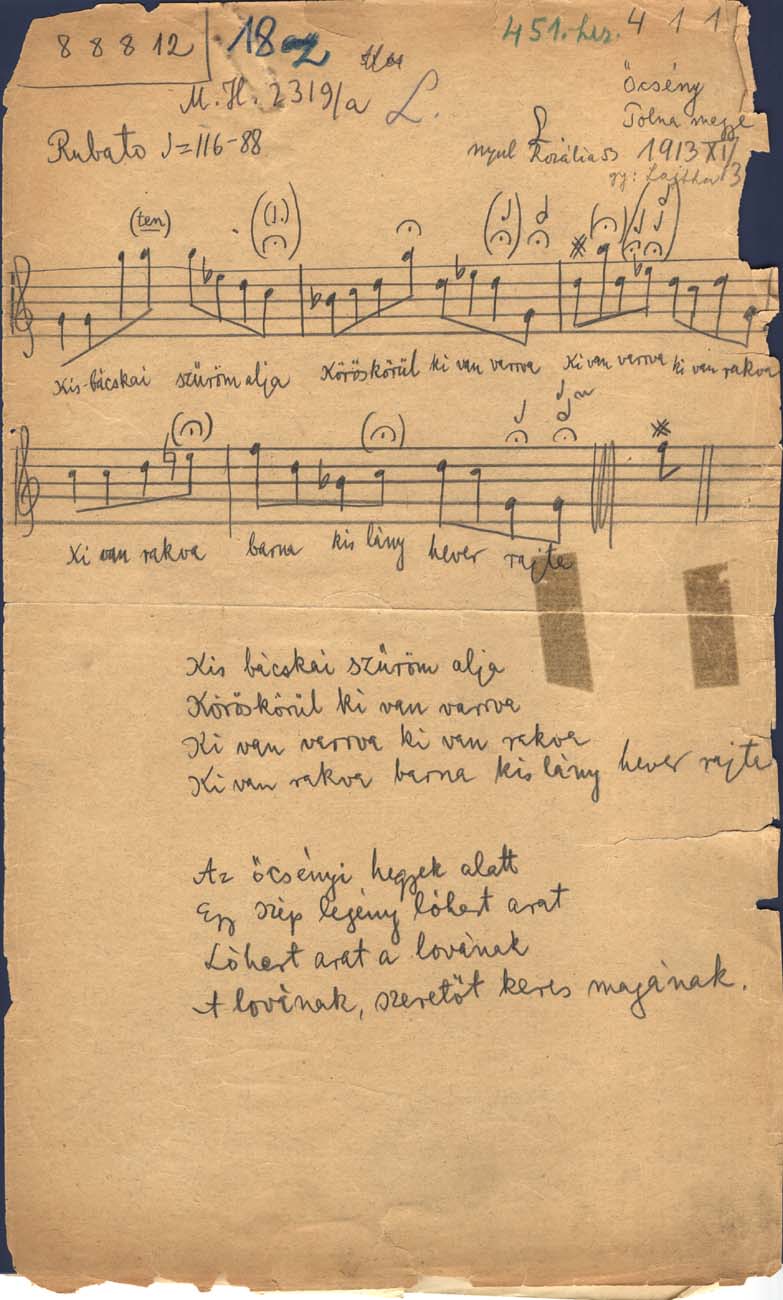 8 8 8 12
18
451. hsz.
4 1 1
M. H. 2319/a
L.
Őcsény
Tolna megye
Rubato ♩=116-88
nyul Rozália 53
1913 XI/3
gy: Lajtha
(ten)
Kis-bácskai szűröm alja Köröskörül ki van varrva Ki van varrva ki van rakva
Ki van rakva barna kis lány hever rajta
Kis bácskai szűröm alja
Köröskörül ki van varrva
Ki van varrva ki van rakva
Ki van rakva barna kis lány hever rajta
Az őcsényi hegyek alatt
Egy szép legény lóhert arat
Lóhert arat a lovának
A lovának, szeretőt keres magának.